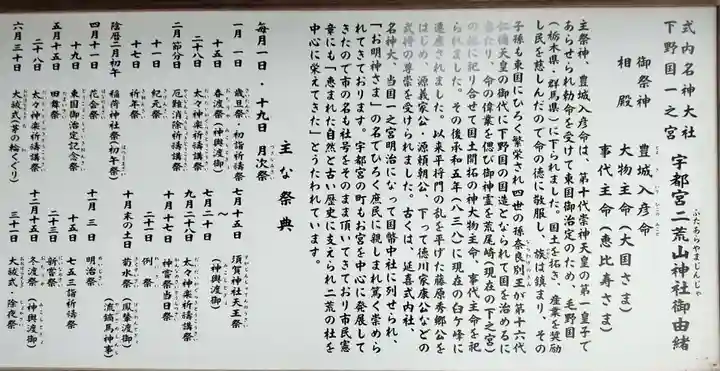 式内名神大社
下野国一之宮
宇都宮二荒山神社御由緒
ふたあらやまじんじゃ
御祭神 豊城入彦命
相殿 大物主命(大国さま)
事代主命(恵比寿さま)
主祭神、豊城入彦命は、第十代崇神天皇の第一皇子で
あらせられ勅命を受けて東国御治定のため、毛野国
(栃木県・群馬県)に下られました。国土を拓き、産業を奨励
し民を慈しんだので命の徳に敬服し、族は鎮まり、その
子孫も東国にひろく繁栄され四世の孫奈良別王が第十六代
仁徳天皇の御代に下野国の国造となられ国を治めるに
当たり、命の偉業を偲び御神霊を荒尾崎(現在の下之宮)
の地に祀り合せて国土開拓の神大物主命、事代主命を祀
られました。その後承和五年(八三八)に現在の臼ケ峰に
遷座されました。以来平将門の乱を平げた藤原秀郷公を
はじめ、源義家公・源頼朝公、下って徳川家康公などの
武将の尊崇を受けられました。古くは、延喜式内社、
名神大、当国一之宮明治になって国幣中社に列せられ、
「お明神さま」の名でひろく庶民に親しまれ篤く崇めら
れてきております。宇都宮の町もお宮を中心に発展して
きたので市の名も社号をそのまま頂いてきており市民憲
章にも「恵まれた自然と古い歴史に支えられ二荒の杜を
中心に栄えてきた」とうたわれています。
主な祭典
毎月一日・十九日 月次祭
一月一日 歳旦祭・初詣祈祷祭
二十八日 春渡祭(神輿渡御)
太々神楽祈祷講祭
二月節分日 厄難消除祈祷講祭
十一日 紀元祭
十七日 祈年祭
陰暦二月初午 稲荷神社祭(初午祭)
四月十一日 花会祭
十九日 東国御治定記念祭
五月十五日 田舞祭
二十八日 太々神楽祈祷講祭
六月三十日 大祓式(茅の輪くぐり)
七月十五日 須賀神社天王祭
〜
七月二十日 (神輿渡御)
九月二十八日 太々神楽祈祷講祭
十月十七日 神嘗祭当日祭
二十一日 例祭
十月末の土日 菊水祭(鳳輦渡御)
(流鏑馬神事)
十一月三日 明治祭
十五日 七五三詣祈祷祭
二十三日 新嘗祭
十二月十五日 冬渡祭(神輿渡御)
三十一日 大祓式・除夜祭